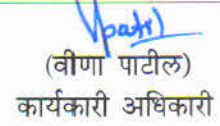 (वीणा पाटील)
कार्यकारी अधिकारी